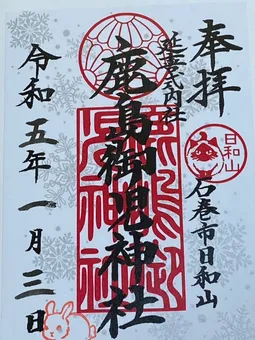 奉拝
日和山
石巻市日和山
延喜式内社
鹿島御児神社
鹿島御児神社
令和五年一月三日